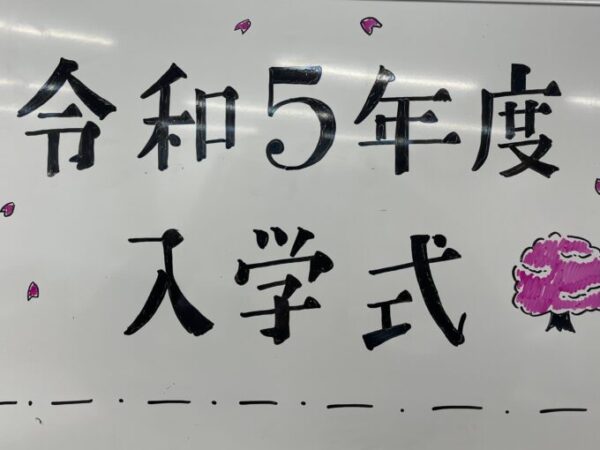 令和5年度
入学式